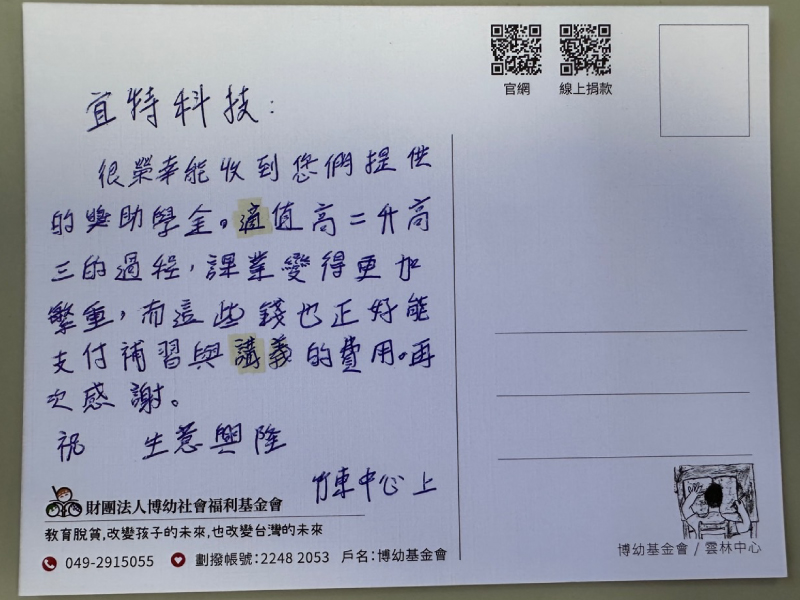 官網
線上捐款
宜特科技：
很榮幸能收到您們提供
的獎助學金。適值高二升高
三的過程，課業變得更加
繁重，而這些錢也正好能
支付補習與講義的費用。再
次感謝。
祝 生意興隆
竹東中心上
財團法人博幼社會福利基金會
教育脫貧,改變孩子的未來,也改變台灣的未來
049-2915055 劃撥帳號:2248 2053 戶名:博幼基金會
博幼基金會 / 雲林中心